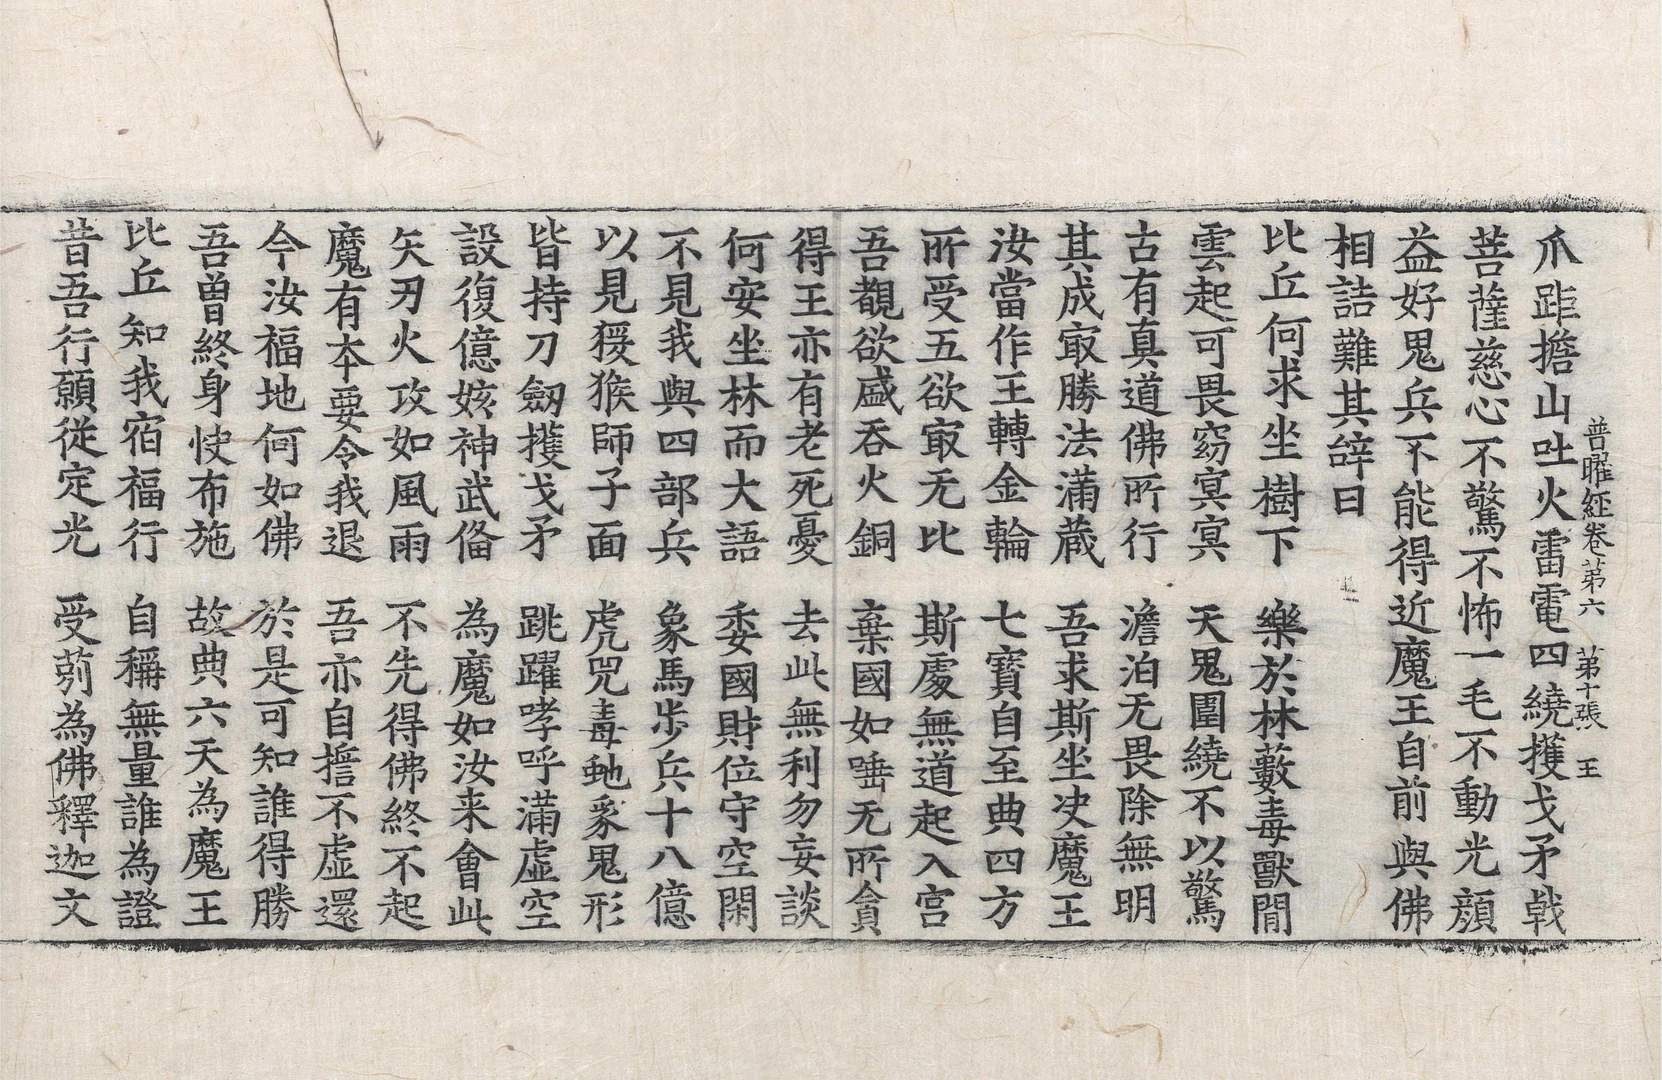 普曜経卷苐六　苐十張　王
爪距擔山吐火雷電四繞擭戈矛戟
菩薩慈心不驚不怖一毛不動光顔
益好鬼兵不能得近魔王自前與佛
相詰難其辝曰
比丘何求坐樹下　樂於林藪毒獸間
雲起可畏窈冥冥　天鬼圍繞不以驚
古有真道佛所行　澹泊无畏除無明
其成㝡勝法滿藏　吾求斯坐决魔王
汝當作王轉金輪　七寳自至典四方
所受五欲㝡无比　斯處無道起入宫
吾覩欲盛吞火銅　棄國如唾无所貪
得王亦有老死憂　去此無利勿妄談
何安坐林而大語　委國財位守空閑
不見我與四部兵　象馬步兵十八億
以見猨猴師子面　虎兕毒虵豕鬼形
皆持刀劔擭戈矛　跳躍哮呼滿虚空
設復億姟神武俻　為魔如汝来會此
矢刃火攻如風雨　不先得佛終不起
魔有本要令我退　吾亦自擔不虚還
今汝福地何如佛　於是可知誰得勝
吾曽終身快布施　故典六天為魔王
比丘知我宿福行　自稱無量誰為證
昔吾行願従定光　受莂為佛釋迦文